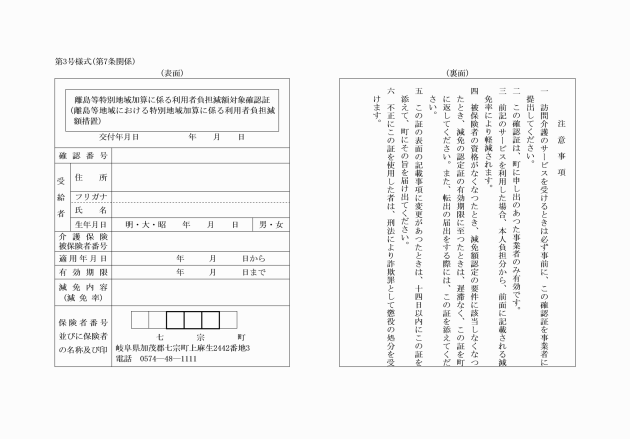 第3号様式(第7条関係)
(表面)
離島等特別地域加算に係る利用者負担減額対象確認証
(離島等地域における特別地域加算に係る利用者負担減
額措置)
交付年月日　　　年　　月　　日
確認番号
受給者
住所
フリガナ
氏名
生年月日　明・大・昭　　年　　月　　日　男・女
介護保険
被保険者番号
適用年月日　　　年　　月　　日から
有効期限　　　年　　月　　日まで
減免内容
(減免率)
保険者番号
並びに保険者
の名称及び印
七宗町
岐阜県加茂郡七宗町上麻生2442番地3
電話　0574―48―1111
(裏面)
注意事項
一　訪問介護のサービスを受けるときは必ず事前に、この確認証を事業者に
提出してください。
二　この確認証は、町に申し出のあつた事業者のみ有効です。
三　前記のサービスを利用した場合、本人負担分から、前面に記載される減
免率により軽減されます。
四　被保険者の資格がなくなつたとき、減免額認定の要件に該当しなくなつ
たとき、減免の認定証の有効期限に至つたときは、遅滞なく、この証を町
に返してください。また、転出の届出をする際には、この証を添えてくだ
さい。
五　この証の表面の記載事項に変更があつたときは、十四日以内にこの証を
添えて、町にその旨を届け出てください。
六　不正にこの証を使用した者は、刑法により詐欺罪として懲役の処分を受
けます。